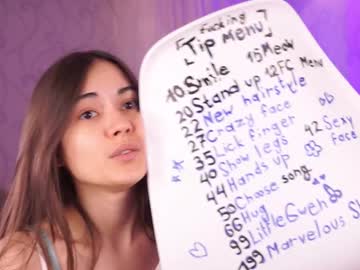 fucking
Tip Menu
10 Smile 15 Meow
20 Stand up 12 FC Menu
22 New hairstyle
27 Crazy face
35 Lick finger
40 Show legs 42 Sexy face
44 Hands up
50 Choose song
66 Hug
99 Little Gweh
199 Marvelous